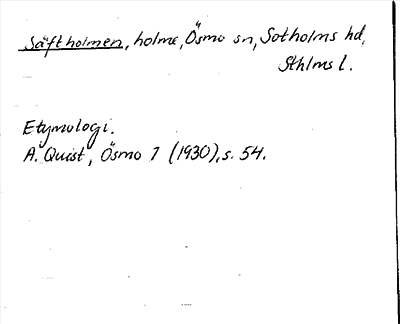 Säftholmen, holme, Ösmo sn, Sotholms hd,
Sthlms l.
Etymologi.
A. Quist, Ösmo 1 (1930), s. 54.